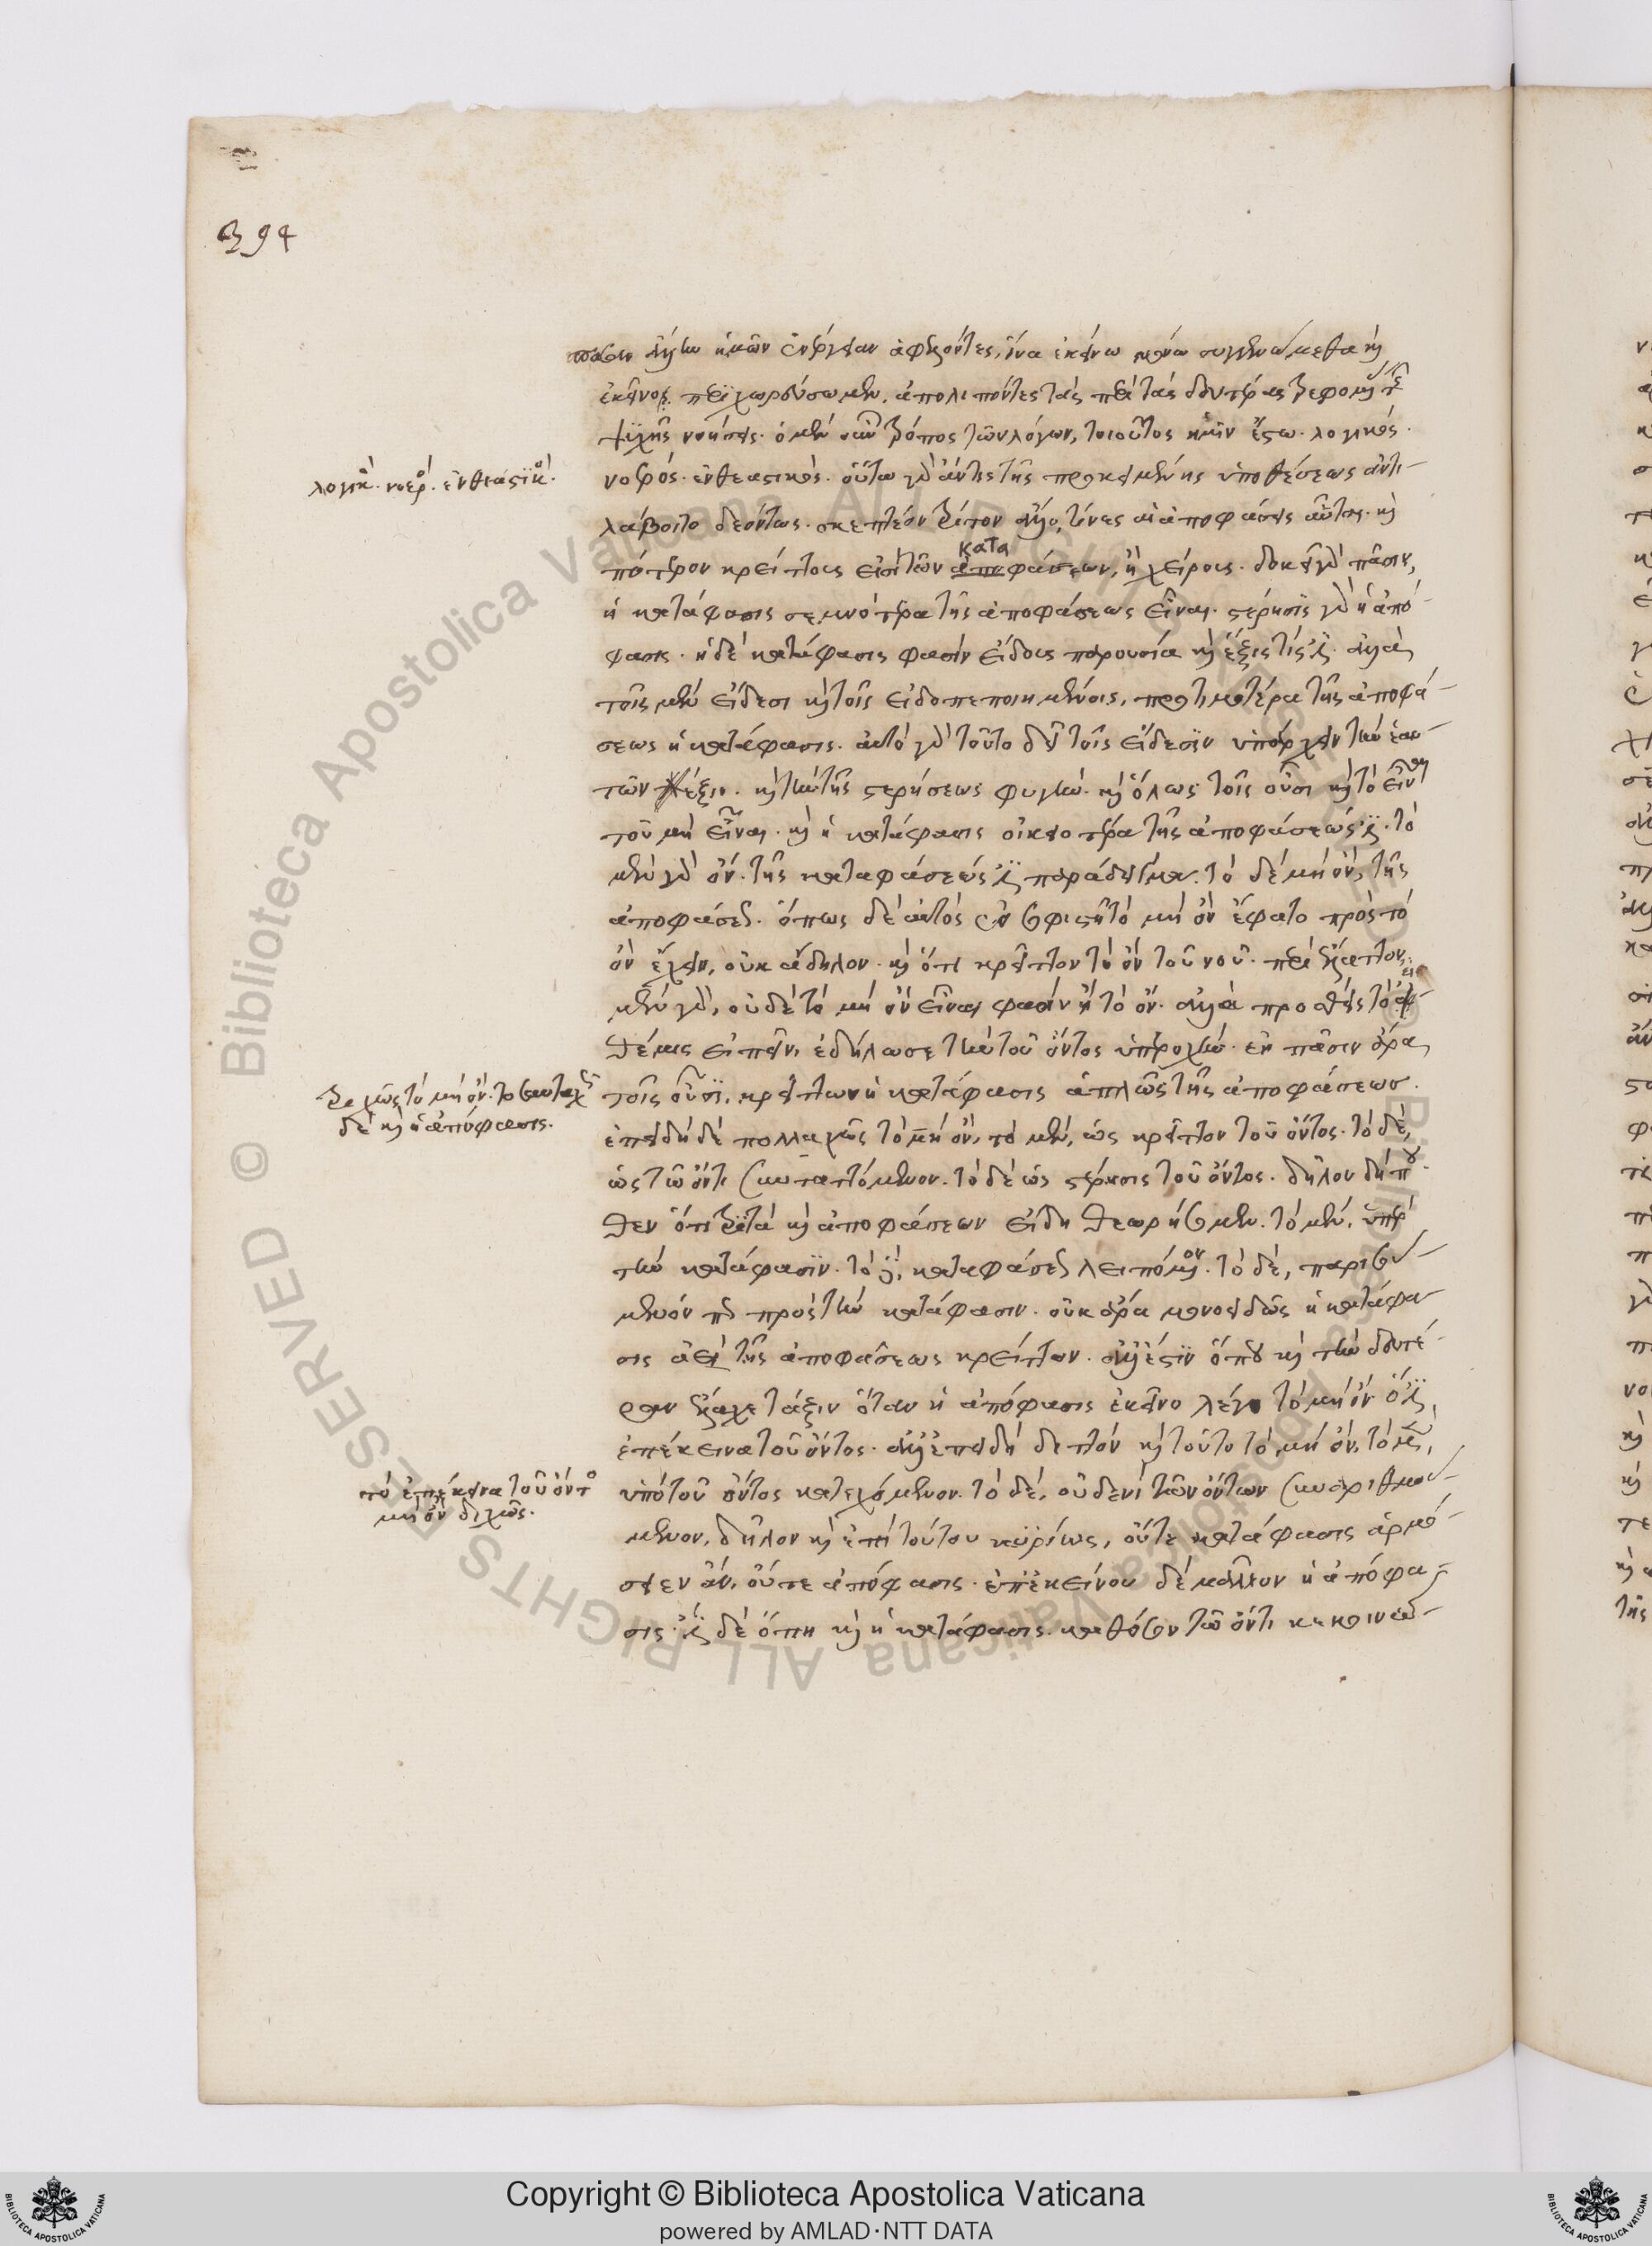 394
πᾶσαν ἄλλην ἡμῶν ἐνέργειαν ἀφελόντες, ἵνα ἐκείνω μόνω συγγενώμεθα καὶ
ἐκεῖνον περιχωρεύσωμεν, ἀπολιπόντες τὰς περὶ τὰς δευτέρας στρεφομένας τῆς
ψυχῆς νοήσεις. ὁ μὲν οὖν τρόπος τῶν λόγων, τοιοῦτος ἡμῖν ἔστω. λογικός.
λογικὸ. νοερὸ. ἐνθεαστικὸ.
νοερός. ἐνθεαστικός. οὕτω γὰρ ἄν τις τῆς προκειμένης ὑποθέσεως ἀντι-
λάβοιτο δεόντως. σκεπτέον τρίτον ἄλλο, τίνες αἱ ἀποφάσεις αὗται. καὶ
κατα
πότερον κρείττους εἰσὶ τῶν ἀποφάσεων, ἢ χείρους. δοκεῖ γὰρ πᾶσιν,
ἡ κατάφασις σεμνοτέρα τῆς ἀποφάσεως εἶναι. στέρησις γὰρ ἡ ἀπό-
φασις. ἡ δὲ κατάφασις φασὶν εἴδους παρουσία καὶ ἕξις τίς ἐστι. ἀλλὰ
τοῖς μὲν εἴδεσι καὶ τοῖς εἰδοπεποιημένοις, προτιμοτέρα τῆς ἀποφά-
σεως ἡ κατάφασις. αὐτὸ γὰρ τοῦτο δεῖ τοῖς εἴδεσιν ὑπάρχειν τὴν ἑαυ-
τῶν ἕξιν. καὶ τὴν τῆς στερήσεως φυγήν. καὶ ὅλως τοῖς οὖσι καὶ τὸ εἶναι
τοῦ μὴ εἶναι. καὶ ἡ κατάφασις οἰκειοτέρα τῆς ἀποφάσεώς ἐστι. τὸ
μὲν γὰρ ὂν τῆς καταφάσεώς ἐστι παράδειγμα. τὸ δὲ μὴ ὂν, τῆς
ἀποφάσεως. ὅπως δὲ αὐτὸς ἐν σοφιστῆ τὸ μὴ ὂν ἔφατο πρὸς τὸ
ὂν ἔχειν, οὐκ ἄδηλον. καὶ ὅτι κρεῖττον τὸ ὂν τοῦ νοῦ.
μὲν γὰρ, οὐδὲ τὸ μὴ ὂν εἶναι φασὶν ἢ τὸ ὄν. ἀλλὰ προσθεὶς τὸ εἰ
θέμις εἰπεῖν, ἐδήλωσε τὴν τοῦ ὄντος ὑπεροχήν. ἐν πᾶσιν ἄρα
τριχῶς τὸ μὴ ὄν. τοσαυταχῶς
δὲ καὶ ἡ ἀπόφασις.
τοῖς οὖσι, κρείττων ἡ κατάφασις ἁπλῶς τῆς ἀποφάσεως.
ἐπειδὴ δὲ πολλαχῶς τὸ μὴ ὄν, τὸ μὲν, ὡς κρεῖττον τοῦ ὄντος. τὸ δὲ,
ὡς τῶ ὄντι συνταττόμενον. τὸ δὲ ὡς στέρησις τοῦ ὄντος. δῆλον δήπου-
θεν ὅτι τριττὰ καὶ ἀποφάσεων εἴδη θεωρήσομεν. τὸ μὲν, ὑπὲρ
τὴν κατάφασιν. τὸ δὲ, καταφάσεως λειπόμενον. τὸ δὲ, παρισού-
μενόν πως πρὸς τὴν κατάφασιν. οὐκ ἄρα μονοειδῶς ἡ κατάφα-
σις ἀεὶ τῆς ἀποφάσεως κρείττων. ἀλλ' ἔστιν ὅπου καὶ τὴν δευτέ-
ραν ἔλαχε τάξιν ὅταν ἡ ἀπόφασις ἐκεῖνο λέγη τὸ μὴ ὂν ὅ ἐστι,
ἐπέκεινα τοῦ ὄντος. ἀλλ' ἐπειδὴ διττὸν καὶ τοῦτο τὸ μὴ ὄν, τὸ μὲν,
τὸ ἐπέκεινα τοῦ ὄντος
μὴ ὂν διχῶς.
ὑπὸ τοῦ ὄντος κατεχόμενον. τὸ δὲ, οὐδενὶ τῶν ὄντων συναριθμού-
μενον, δῆλον καὶ ἐπὶ τούτου κυρίως, οὔτε κατάφασις ἁρμό-
σειεν ἄν, οὔτε ἀπόφασις. ἐπ' ἐκείνου δὲ μᾶλλον ἡ ἀπόφα-
σις. ἔστι δὲ ὅπη καὶ ἡ κατάφασις. καθόσον τῶ ὄντι κεκοινώ-
Copyright © Biblioteca Apostolica Vaticana
powered by AMLAD·NTT DATA